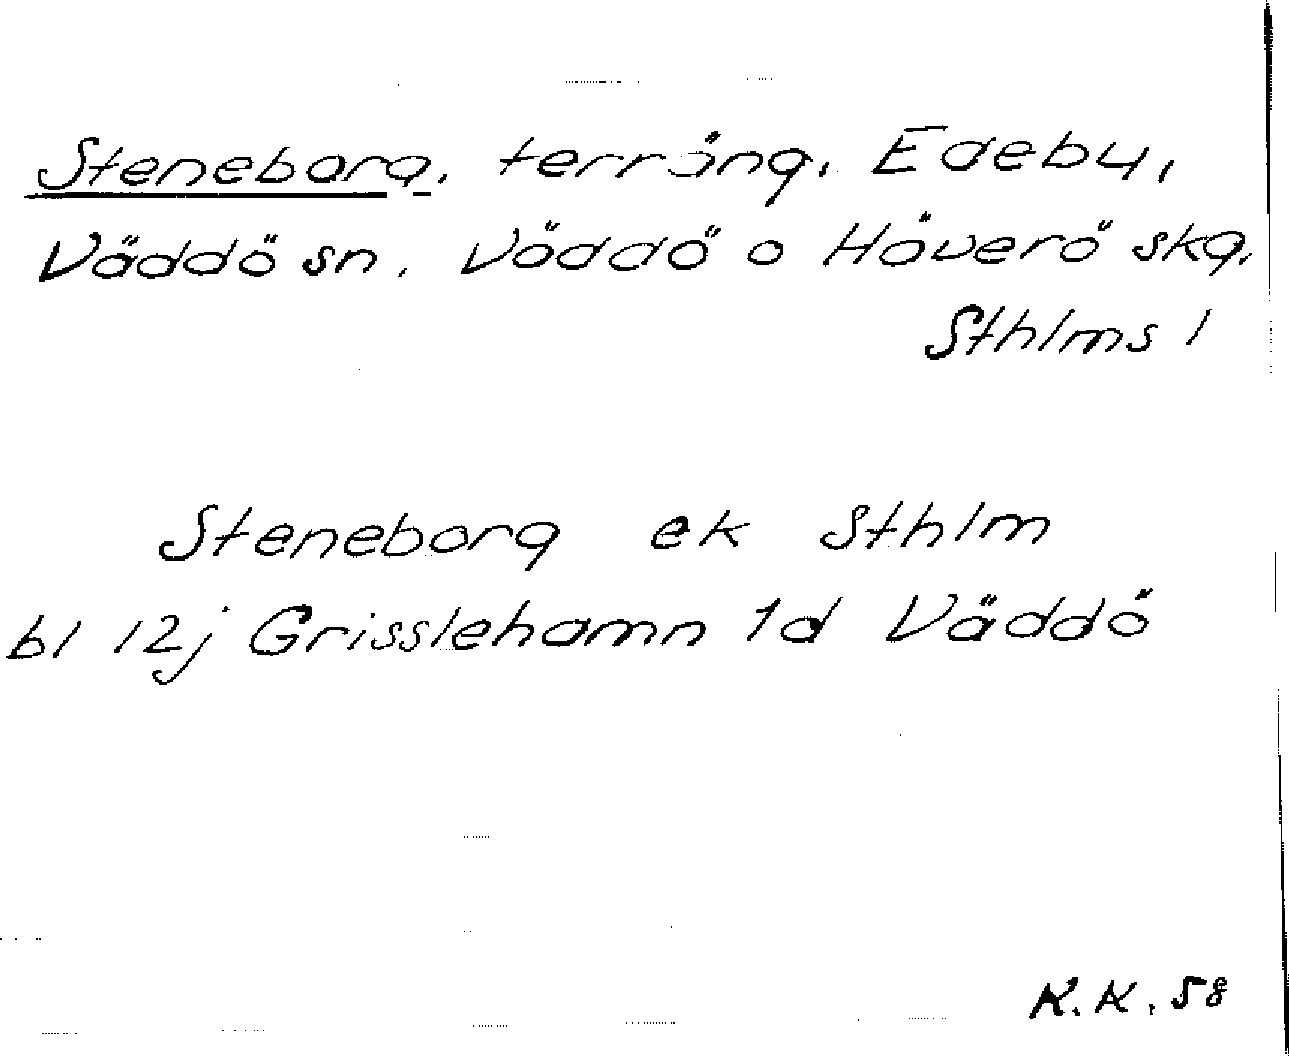 Steneborg, terräng, Edeby,
Väddö sn, Väddö o Häverö skg,
Sthlms l
Steneborg ek Sthlm
bl 12j Grisslehamn 1d Väddö
K.K. 58